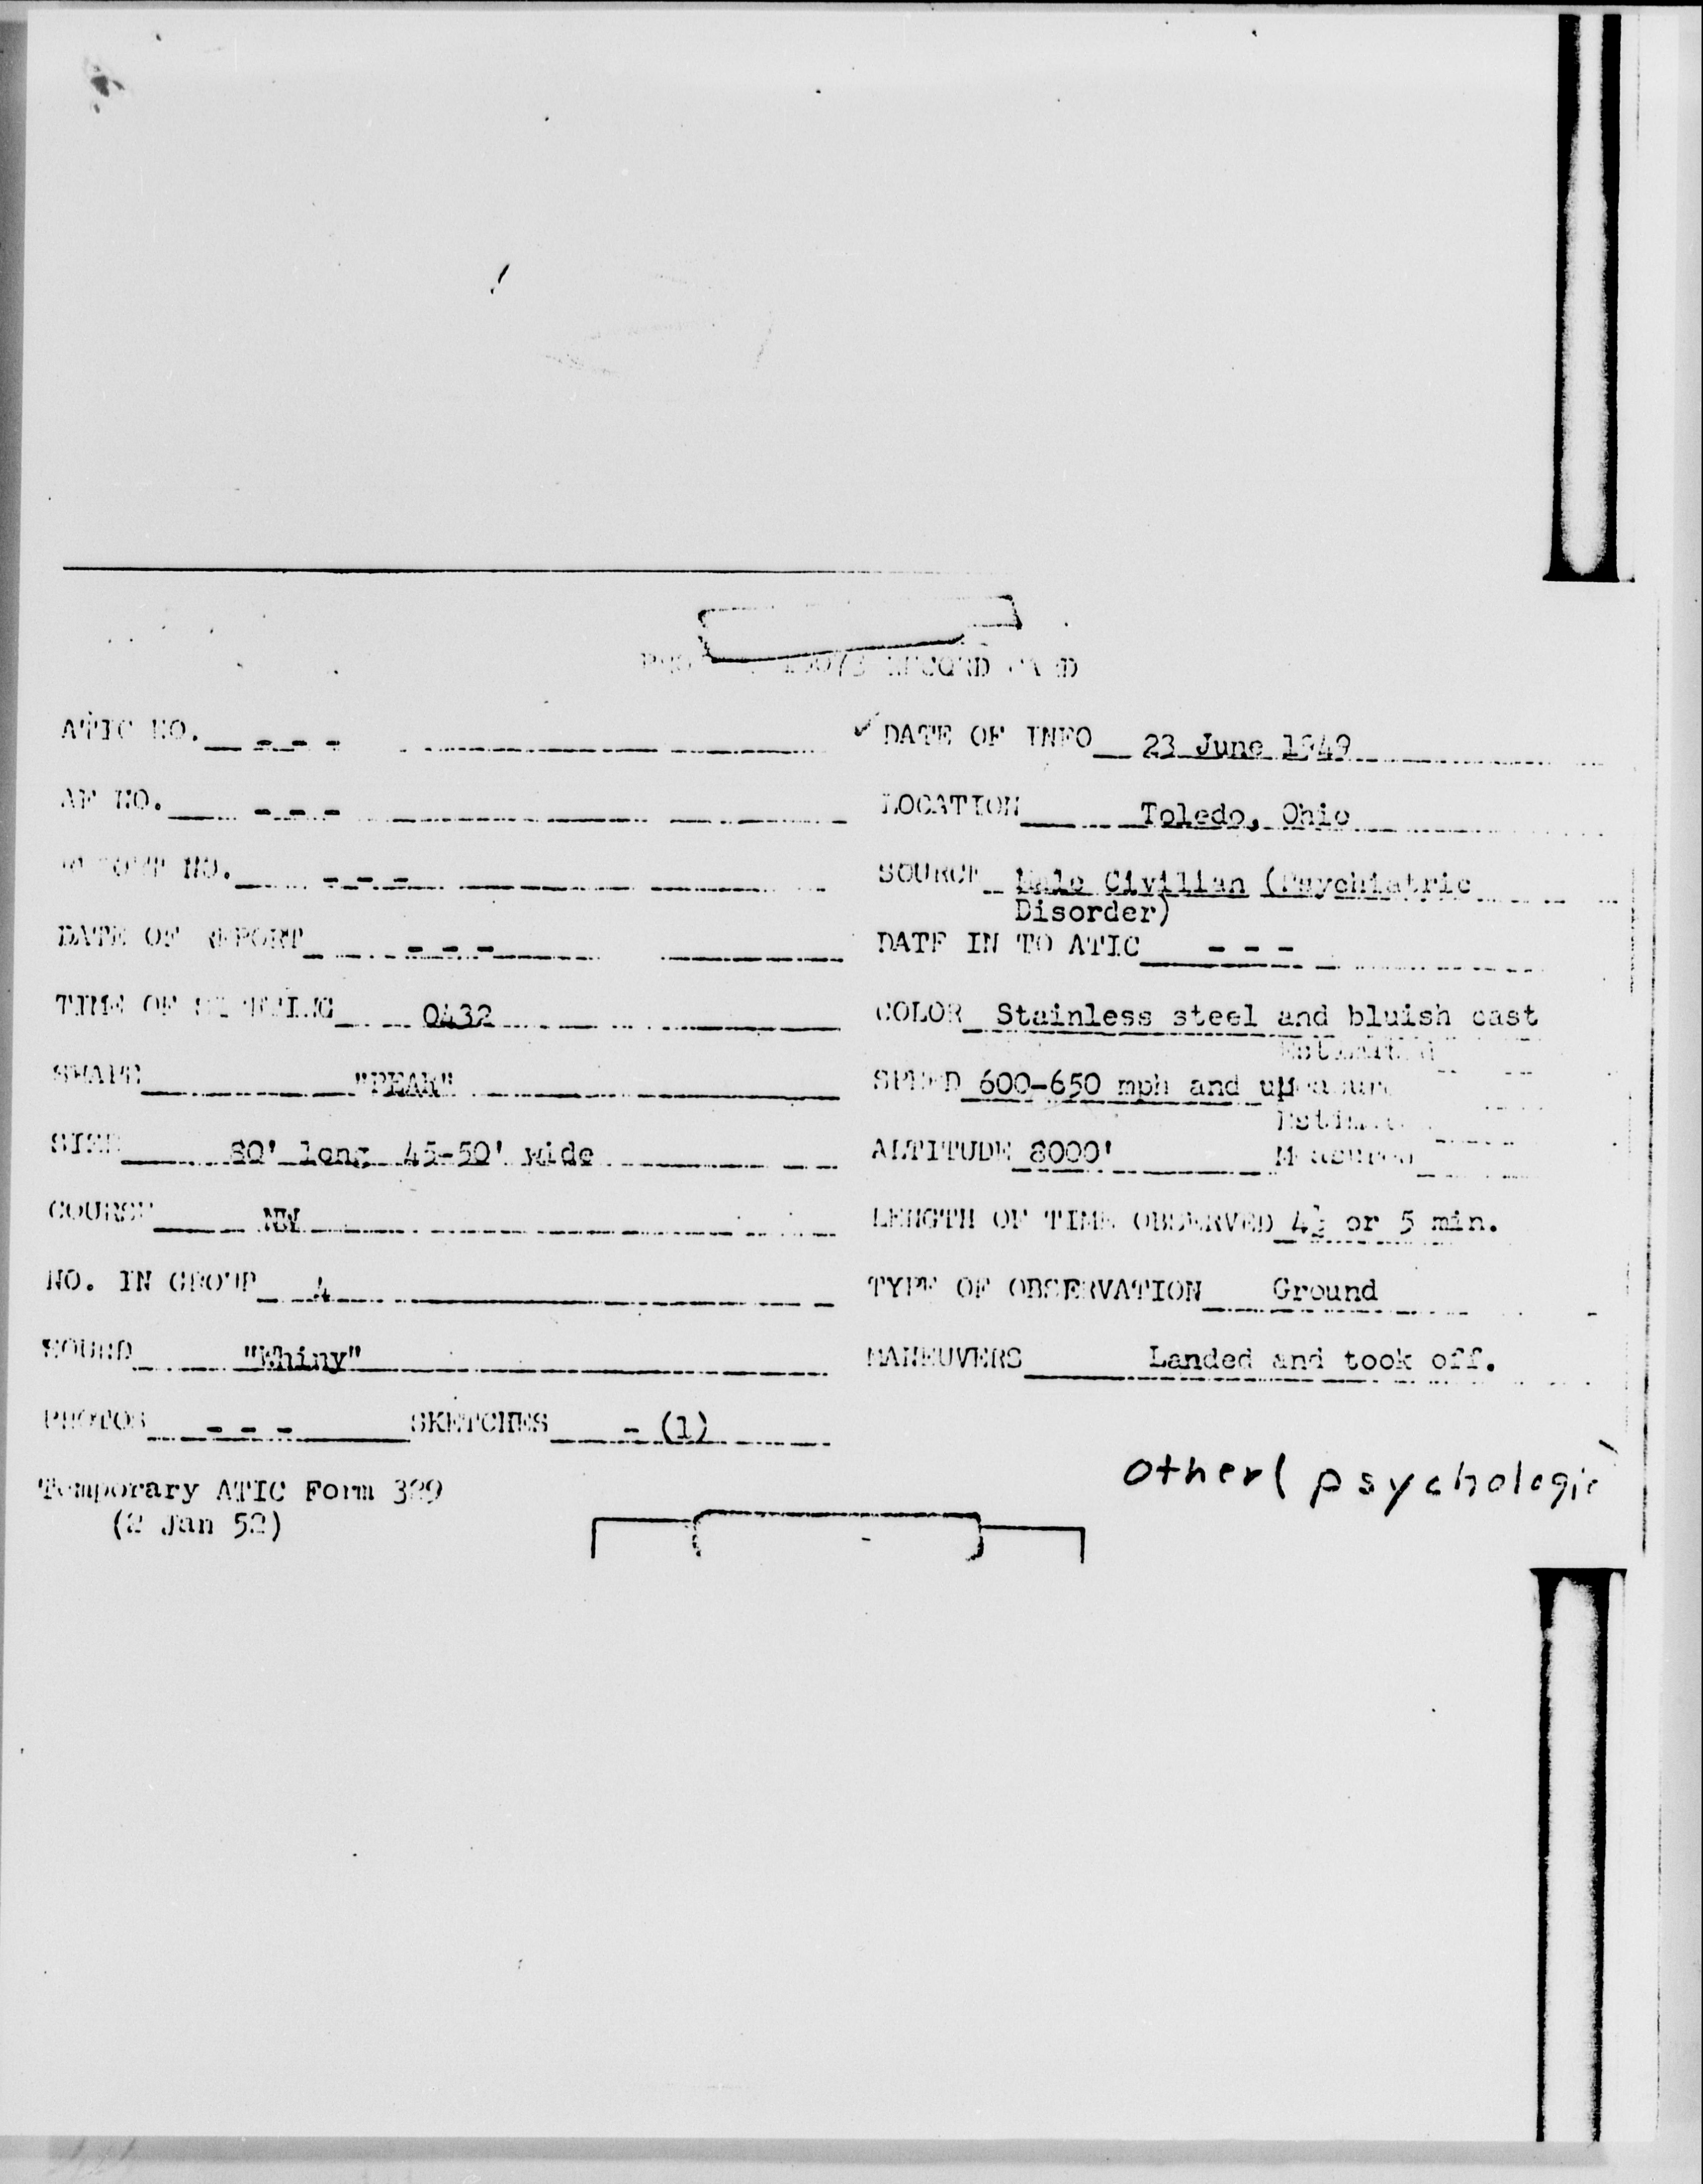 10073 RECORD CARD
ATIC NO. - - -
✓ DATE OF INFO 23 June 1949
AF NO. - - -
LOCATION Toledo, Ohio
NO. - - -
SOURCE Male Civilian (Psychiatric
Disorder)
DATE OF REPORT - - -
DATE IN TO ATIC - - -
TIME OF SIGHTING 0432
COLOR Stainless steel and bluish cast
SHAPE "PEAR"
Estimated
SPEED 600-650 mph and up
SIZE 80' long 45-50' wide
ALTITUDE 8000'
Measured
COURSE NW
LENGTH OF TIME OBSERVED 4½ or 5 min.
NO. IN GROUP 4
TYPE OF OBSERVATION Ground
SOUND "Whiny"
MANEUVERS Landed and took off.
PHOTOS - - - SKETCHES - (1)
Other( psychologic
Temporary ATIC Form 329
(2 Jan 52)